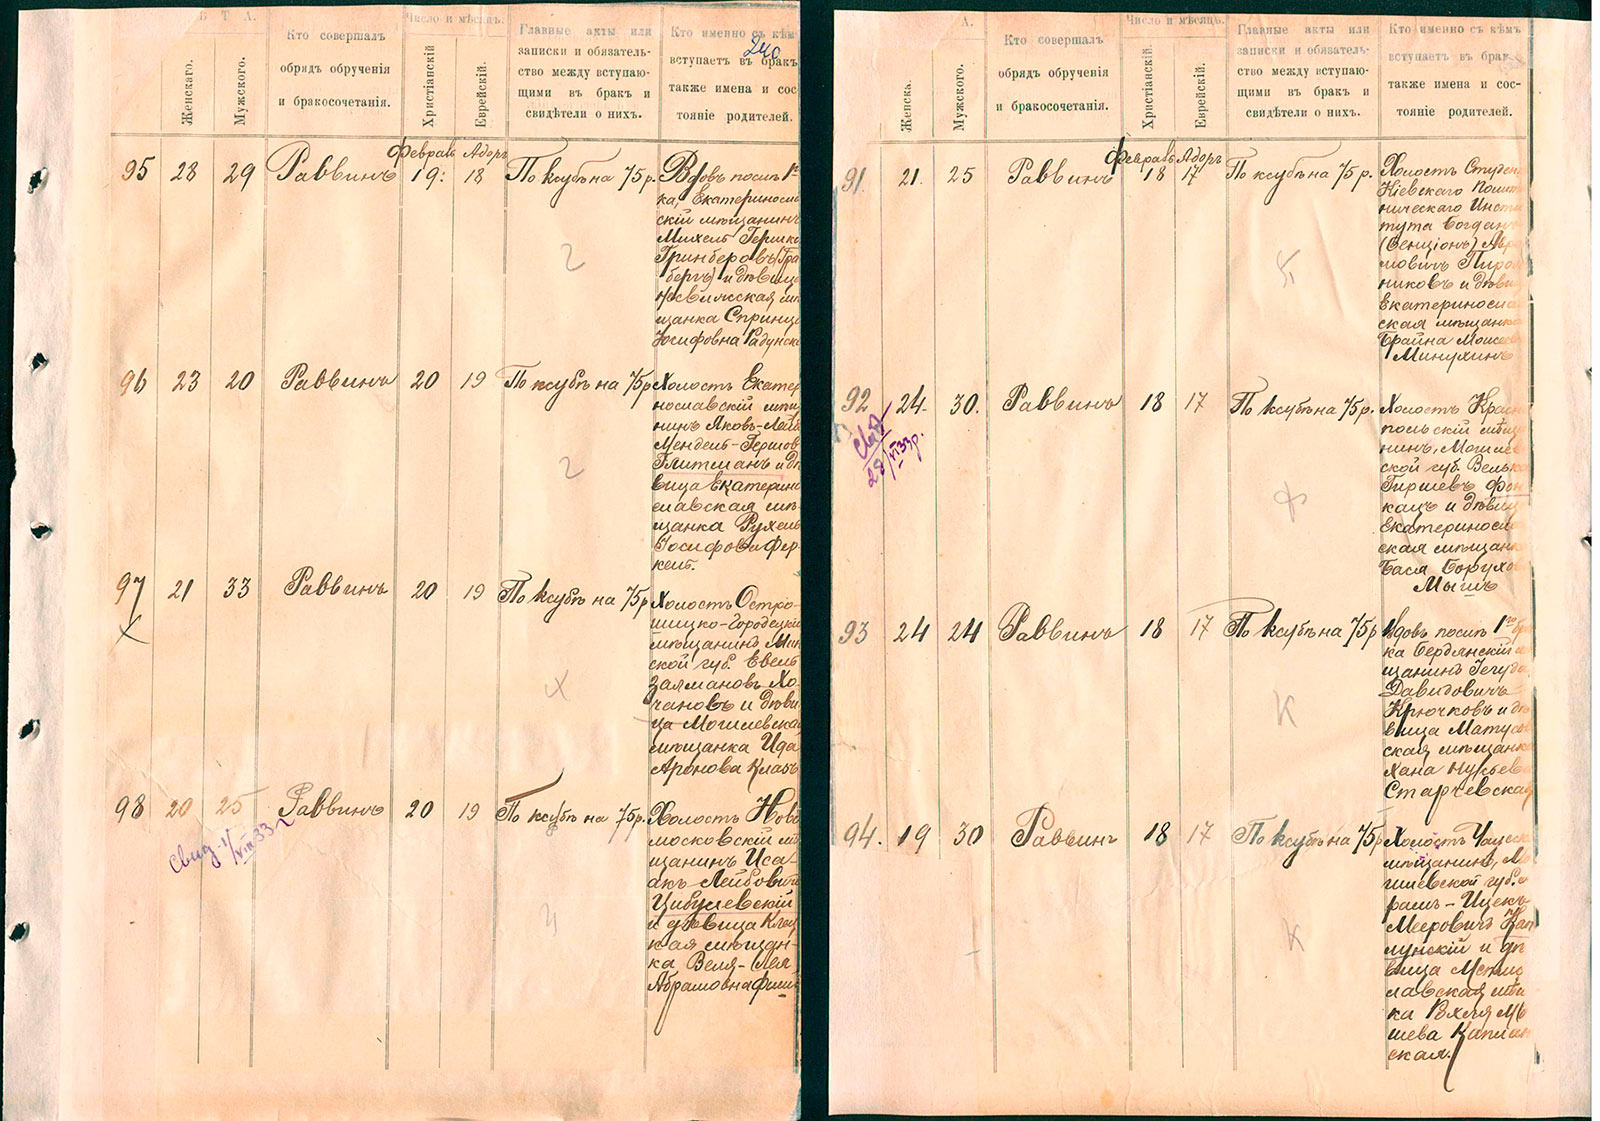 Б Т А.
Число и мѣсяцъ.
Женскаго.
Мужского.
Кто совершалъ
обрядъ обрученія
и бракосочетанія.
Христіанскій
Еврейскій.
Главные акты или
записки и обязатель-
ство между вступаю-
щими въ бракъ и
свидѣтели о нихъ.
Кто именно съ кѣмъ
вступаетъ въ бракъ
также имена и сос-
тояніе родителей.
240
95 28 29 Раввинъ Февраль 19: Адоръ 18 По ксубѣ на 75 р.
Вдовъ послѣ 1го
ка, Екатеринослав
скій мѣщанинъ
Михель Гершко
Гринберовъ (Гри
бергъ) и дѣвица
Несвижская мѣ
щанка Спринца
Іосифовна Радунска
2
96 23 20 Раввинъ 20 19 По ксубѣ на 75 р
Холостъ Екатер
нославскій мѣща
нинъ Яковъ-Лейб
Мендель-Гершов
Глитманъ и дѣ
вица Екатерино
славская мѣ
щанка Рухель
Іосифова Фер-
кель.
2
97 21 33 Раввинъ 20 19 По ксубѣ на 75 р
Холостъ Остро-
шицко-Городецкій
мѣщанинъ Мин
ской губ. Евель
Залмановъ Хо-
чановъ и дѣви
ца Могилевская
мѣщанка Ида
Аронова Клазъ
х
98 20 25 Раввинъ 20 19 По ксубѣ на 75 р.
Свид. 1/VIII 33 г
Холостъ Ново
московскій мѣ
щанинъ Иса-
акъ Лейбовичъ
Цибулевскій
и дѣвица Клец
кая мѣщан-
ка Веля-Лея
Абрамовна Фиш
А.
Число и мѣсяцъ.
Женска.
Мужского.
Кто совершалъ
обрядъ обрученія
и бракосочетанія.
Христіанскій.
Еврейскій.
Главные акты или
записки и обязатель-
ство между вступаю-
щими въ бракъ и
свидѣтели о нихъ.
Кто именно съ кѣмъ
вступаетъ въ брак
также имена и сос-
тояніе родителей.
91. 21. 25 Раввинъ Февраль 18 Адоръ 17 По ксубѣ на 75 р.
Холостъ Студен
Кіевскаго Полит
ническаго Инсти
тута Богданъ
(Бенціонъ) Абра
мовичъ Пиро
никовъ и дѣви
Екатеринослав
ская мѣщанка
Брайна Моисеев
Минухинъ
92 24. 30. Раввинъ 18 17 По ксубѣ на 75 р.
28/VI 33 р.
Холостъ Красно
польскій мѣща
нинъ, Могилев
ской губ. Велька
Гиршевъ Фон
кацъ и дѣвица
Екатеринослав
ская мѣщанка
Бася Борухо
Мышъ
Ф
93 24 24 Раввинъ 18 17 По ксубѣ на 75 р
Вдовъ послѣ 1го бра
ка Бердянскій м
щанинъ Іегуда
Давидовичъ
Крючковъ и дѣ
вица Матусов
ская мѣщанка
Хана Нусьева
Старчевская
К
94. 19 30 Раввинъ 18 17 По ксубѣ на 75 р
Холостъ Чаусск
мѣщанинъ, Мо
гилевской губ.
рамъ-Ицекъ
Мееровичъ Кап
лунскій и дѣ
вица Мстис
лавская мѣщ
ка Рохля Мов
шева Каплан
ская.
К